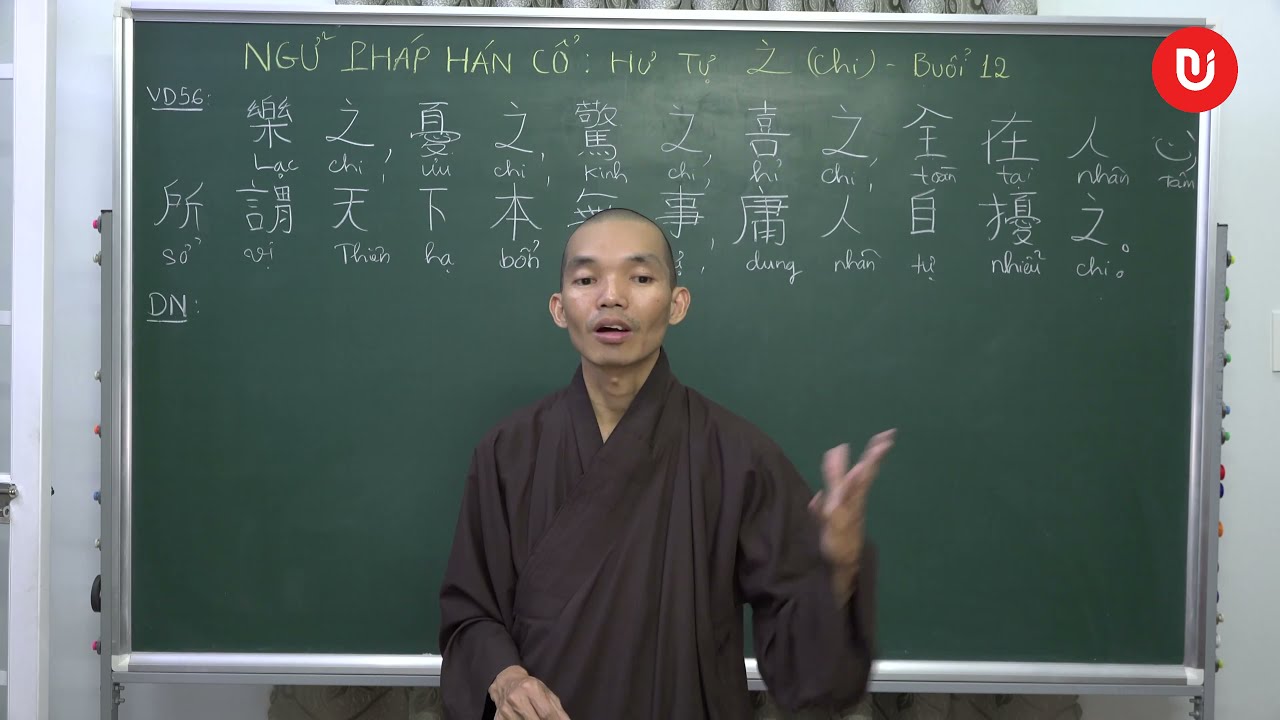 NGỮ PHÁP HÁN CỔ: HƯ TỰ 之 (Chi) - Buổi 12
VD56:
樂 之, 憂 之, 驚 之, 喜 之, 全 在 人 心
Lạc chi, ưu chi, kinh chi, hỉ chi, toàn tại nhân tâm
所 謂 天 下 本 無 事, 庸 人 自 擾 之。
sở vị Thiên hạ bổn , dung nhân tự nhiễu chi.
DN: